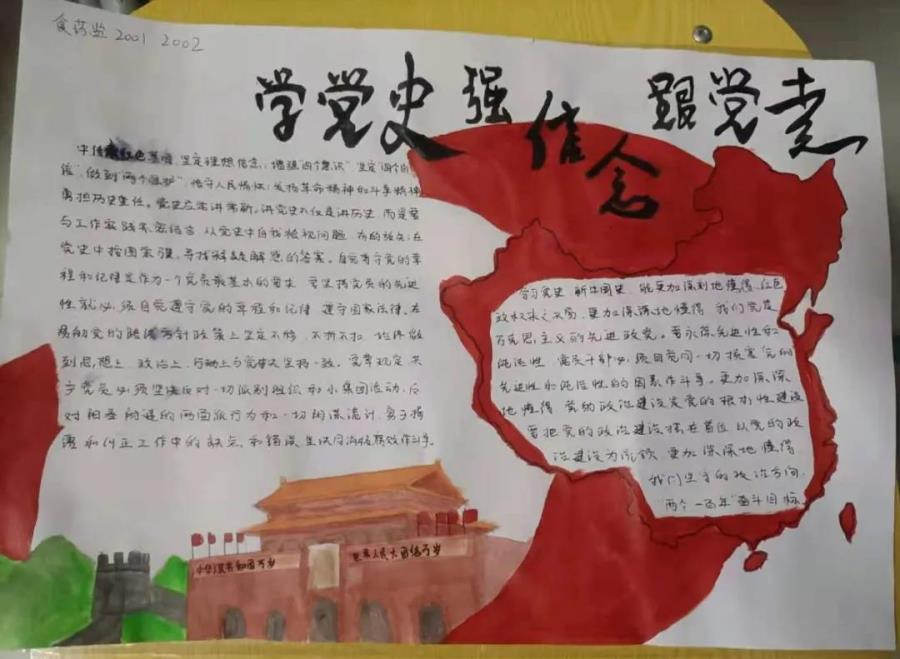 食药监 2001 2002
学党史 强信念 跟党走
中传承红色基因，坚定理想信念，增强"四个意识"坚定"四个自
信"，做到"两个维护"，恪守人民情怀，发扬革命精神和斗争精神
勇担历史重任。党史应常讲常新。讲党史不仅是讲历史，而是要
与工作实践紧密结合，从党史中自我检视问题
党史中按图索骥，寻找释疑解惑的答案。自觉遵守党的章
程和纪律是作为一个党员最基本的要求，要坚持党员的先进
性就必须自觉遵守党的章程和纪律，遵守国家法律，在
党的路线方针政策上坚定不移，不折不扣，始终做
到思想上、政治上、行动上与党中央坚持一致。党章规定共
产党员必须坚决反对一切派别组织和小集团活动，反
对阳奉阴违的两面派行为和一切阴谋诡计，勇于揭
露和纠正工作中的缺点和错误，坚决同消极腐败作斗争。
学习党史、新中国史，能更加深刻地懂得，红色
政权来之不易，更加深深地懂得，我们党是
马克思主义的先进政党。要永葆先进性和
纯洁性，党员干部必须自觫同一切损害党的
先进性和纯洁性的因素作斗争。更加深深
地懂得，党的政治建设是党的根本性建设
要把党的政治建设摆在首位，以党的政
治建设为统领，更加深深地懂得
我们坚守的政治方向，
"两个一百年"奋斗目标
中华人民共和国万岁
世界人民大团结万岁